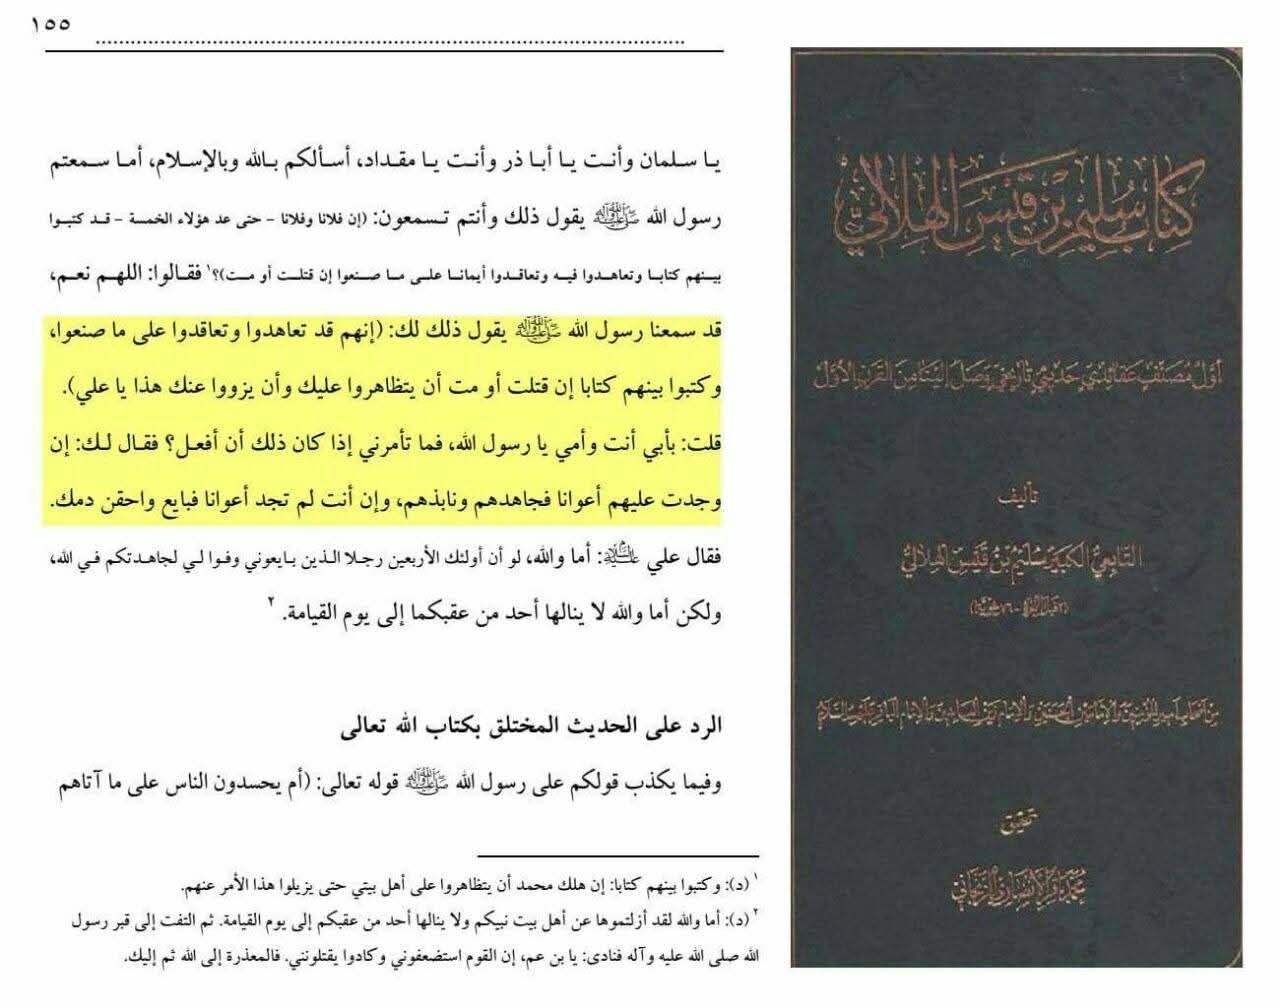 ١٥٥
يا سلمان وأنت يا أبا ذر وأنت يا مقداد، أسألكم بالله وبالإسلام، أما سمعتم
رسول الله ﷺ يقول ذلك وأنتم تسمعون: (إن فلانا وفلانا - حتى عد هؤلاء الخمسة - قد كتبوا
بينهم كتابا وتعاهدوا فيه وتعاقدوا أيمانا على ما صنعوا إن قتلت أو مت)؟١ فقالوا: اللهم نعم،
قد سمعنا رسول الله ﷺ يقول ذلك لك: (إنهم قد تعاهدوا وتعاقدوا على ما صنعوا،
وكتبوا بينهم كتابا إن قتلت أو مت أن يتظاهروا عليك وأن يزووا عنك هذا يا علي).
قلت: بأبي أنت وأمي يا رسول الله، فما تأمرني إذا كان ذلك أن أفعل؟ فقال لك: إن
وجدت عليهم أعوانا فجاهدهم ونابذهم، وإن أنت لم تجد أعوانا فبايع واحقن دمك.
فقال علي عليه السلام: أما والله، لو أن أولئك الأربعين رجلا الذين بايعوني وفوا لي لجاهدتكم في الله،
ولكن أما والله لا ينالها أحد من عقبكما إلى يوم القيامة.٢
الرد على الحديث المختلق بكتاب الله تعالى
وفيما يكذب قولكم على رسول الله ﷺ قوله تعالى: (أم يحسدون الناس على ما آتاهم
١ (د): وكتبوا بينهم كتابا: إن هلك محمد أن يتظاهروا على أهل بيتي حتى يزيلوا هذا الأمر عنهم.
٢ (د): أما والله لقد أزلتموها عن أهل بيت نبيكم ولا ينالها أحد من عقبكم إلى يوم القيامة. ثم التفت إلى قبر رسول
الله صلى الله عليه وآله فنادى: يا بن عم، إن القوم استضعفوني وكادوا يقتلونني. فالمعذرة إلى الله ثم إليك.
كتاب سليم بن قيس الهلالي
أول مصنف عقائدي حديثي تاريخي وصل إلينا من القرن الأول
تأليف
التابعي الكبير سليم بن قيس الهلالي
تحقيق
محمد باقر الأنصاري الزنجاني